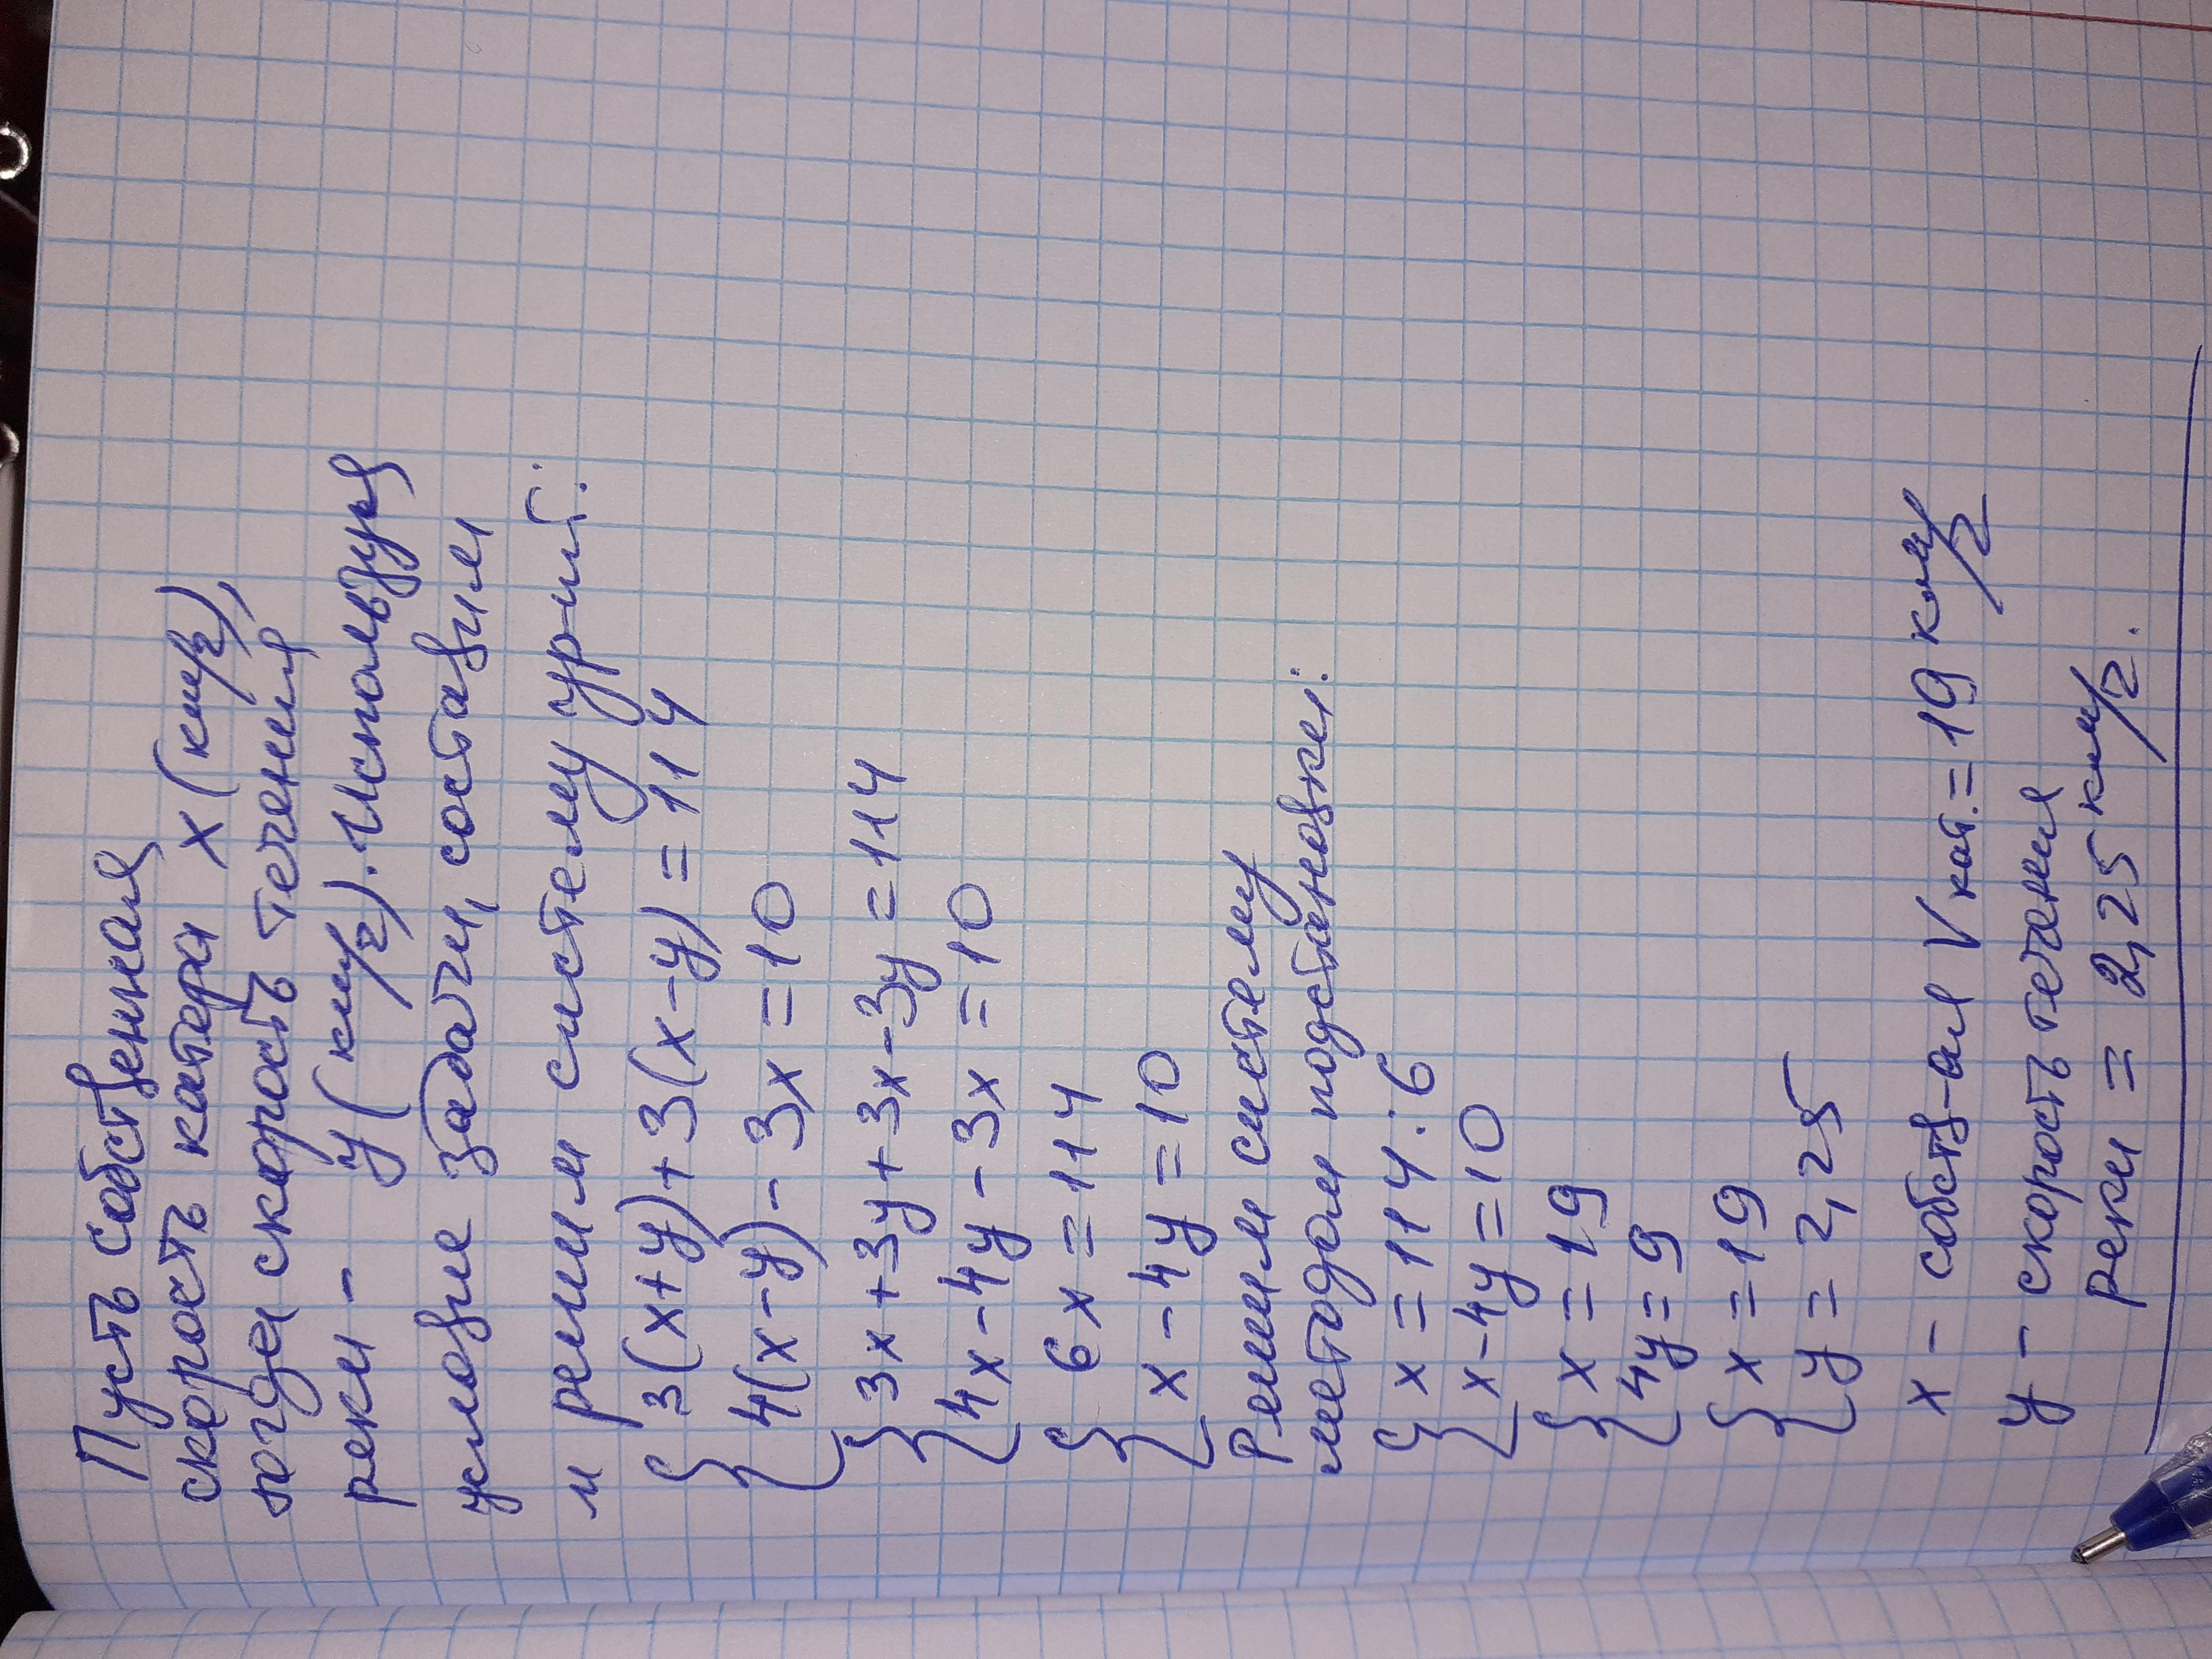 Пусть собственная
скорость катера x (км/ч),
тогда скорость течения
реки – y (км/ч). Используя
условие задачи, составим
и решим систему ур-ий:
{ 3(x+y)+3(x-y)=114
4(x-y)-3x=10
{ 3x+3y+3x-3y=114
4x-4y-3x=10
{ 6x=114
x-4y=10
Решим систему
методом подстановки:
{ x=114:6
x-4y=10
{ x=19
4y=9
{ x=19
y=2,25
x – собств-ая V кат.=19 км/ч
y – скорость течения
реки = 2,25 км/ч.